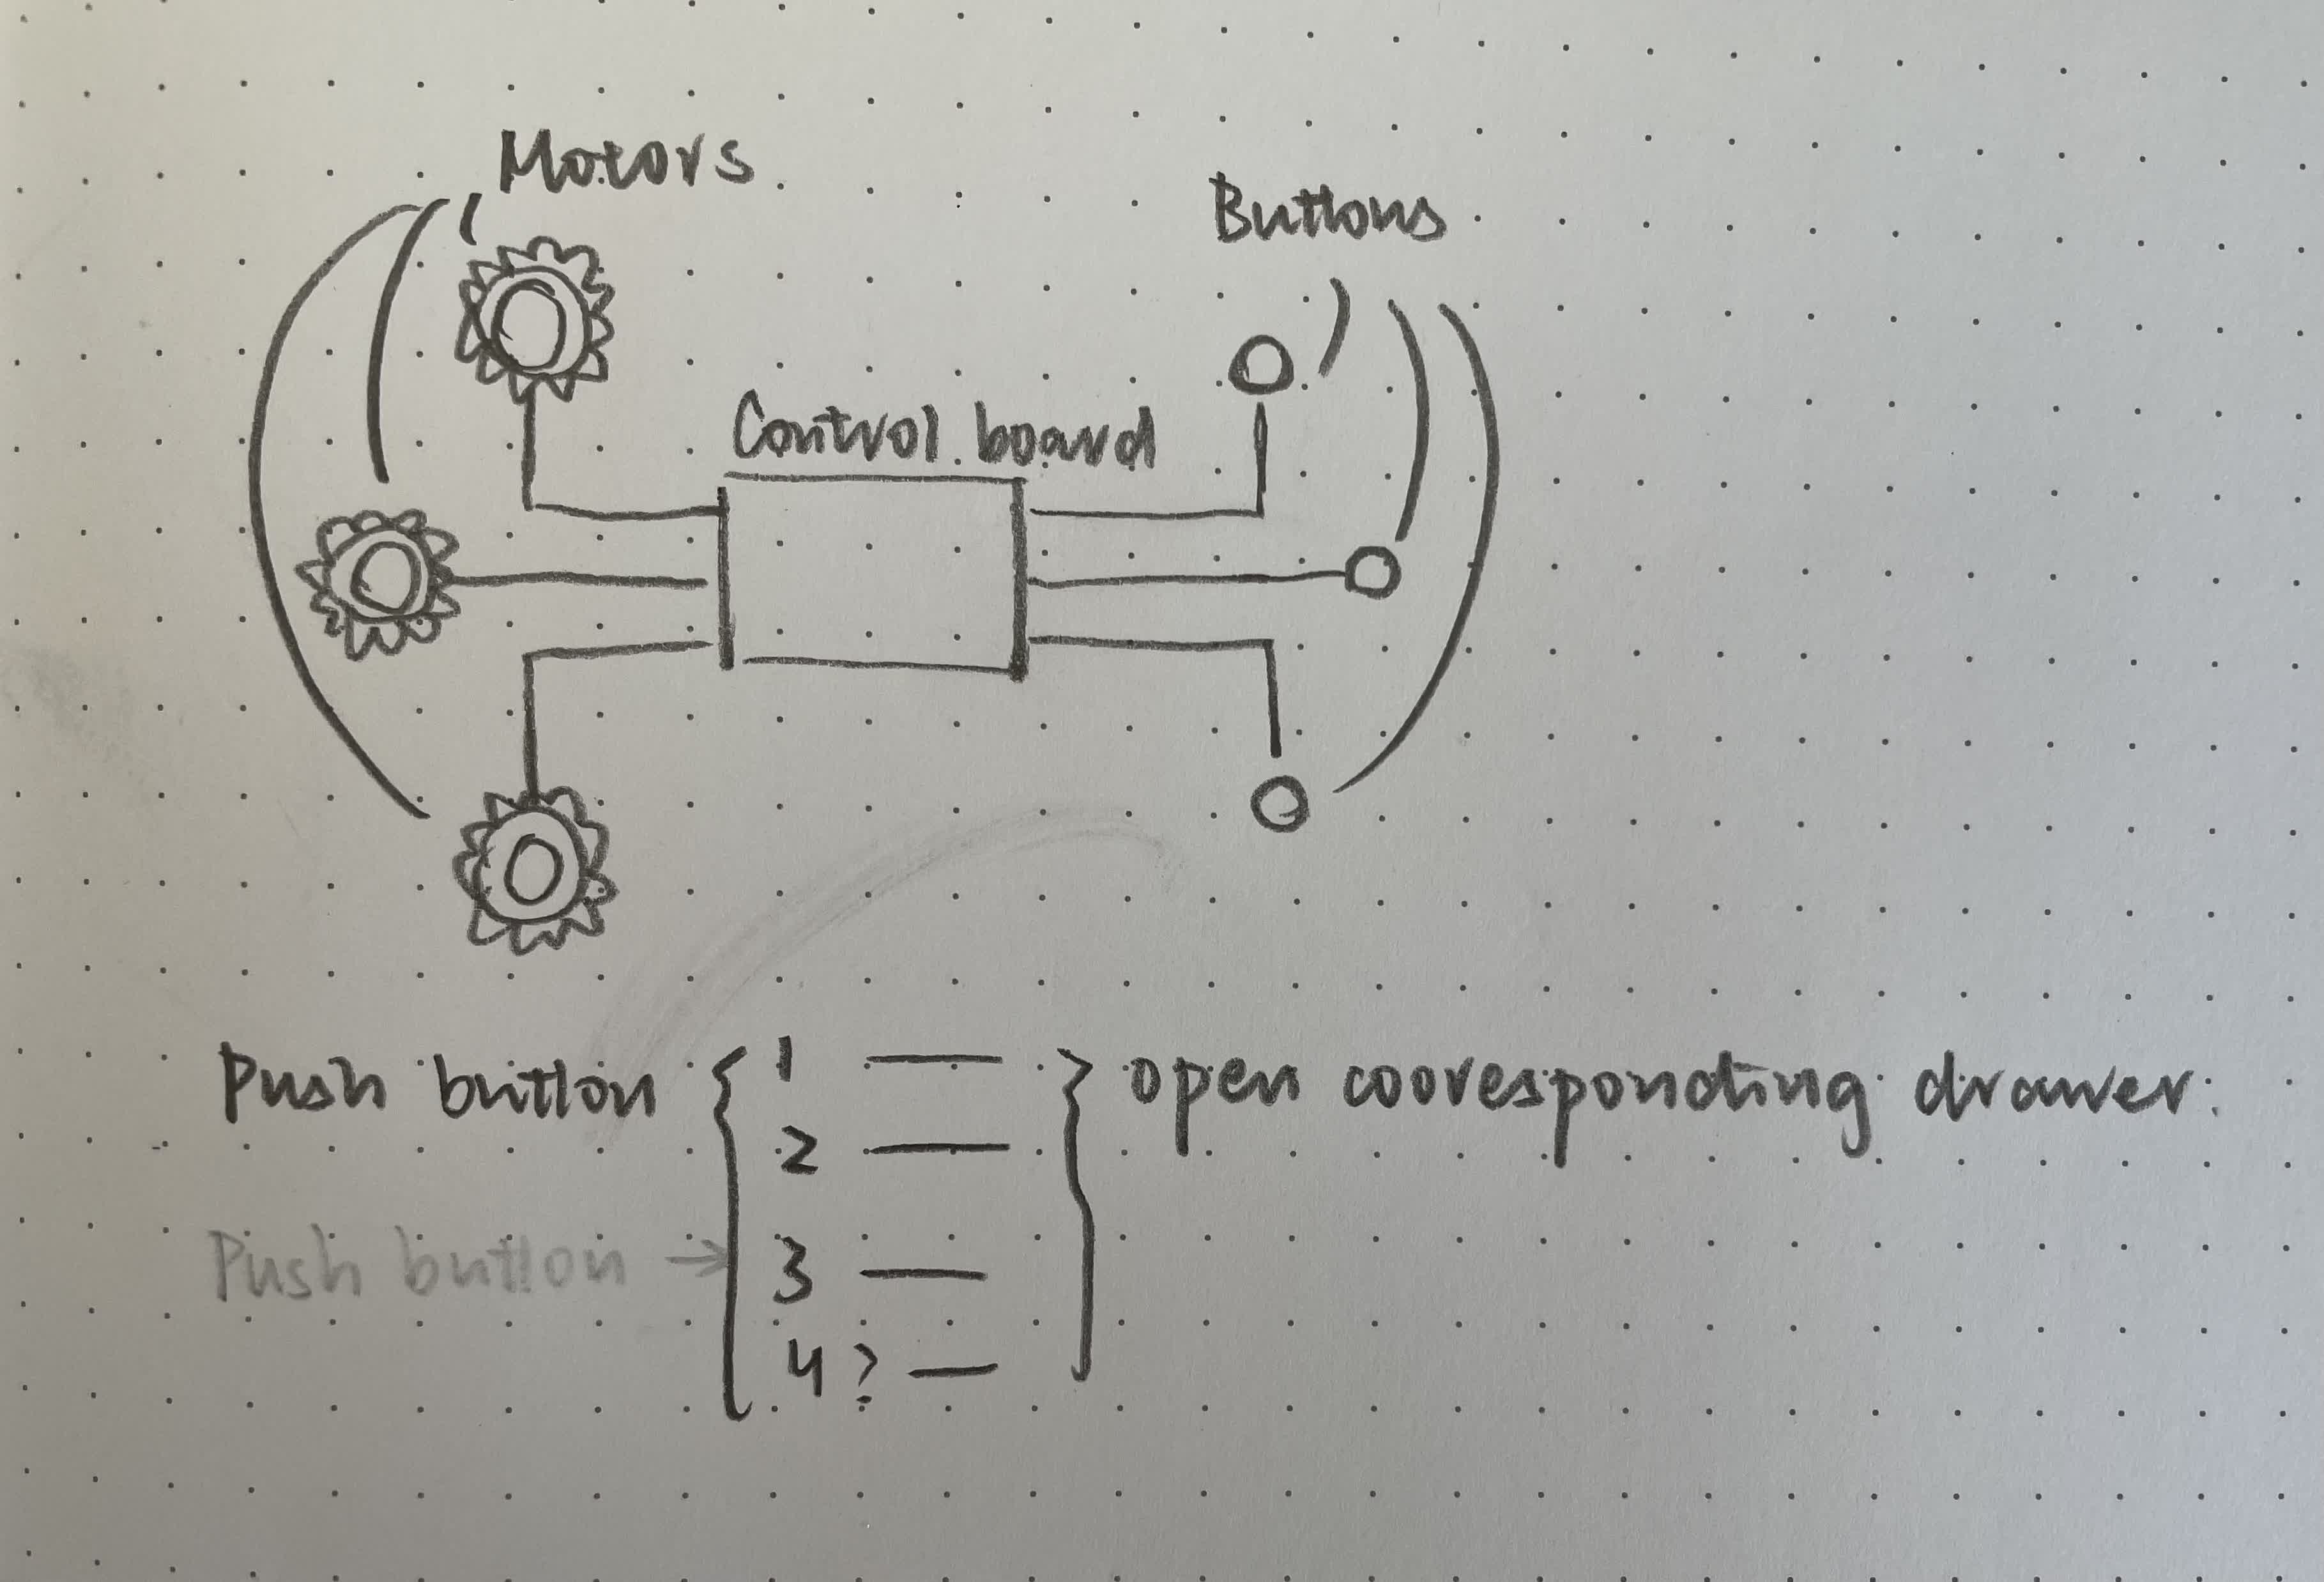 Motors
Buttons
Control board
Push button { 1 — } open cooresponding drawer.
2 —
Push button → 3 —
4 ? —